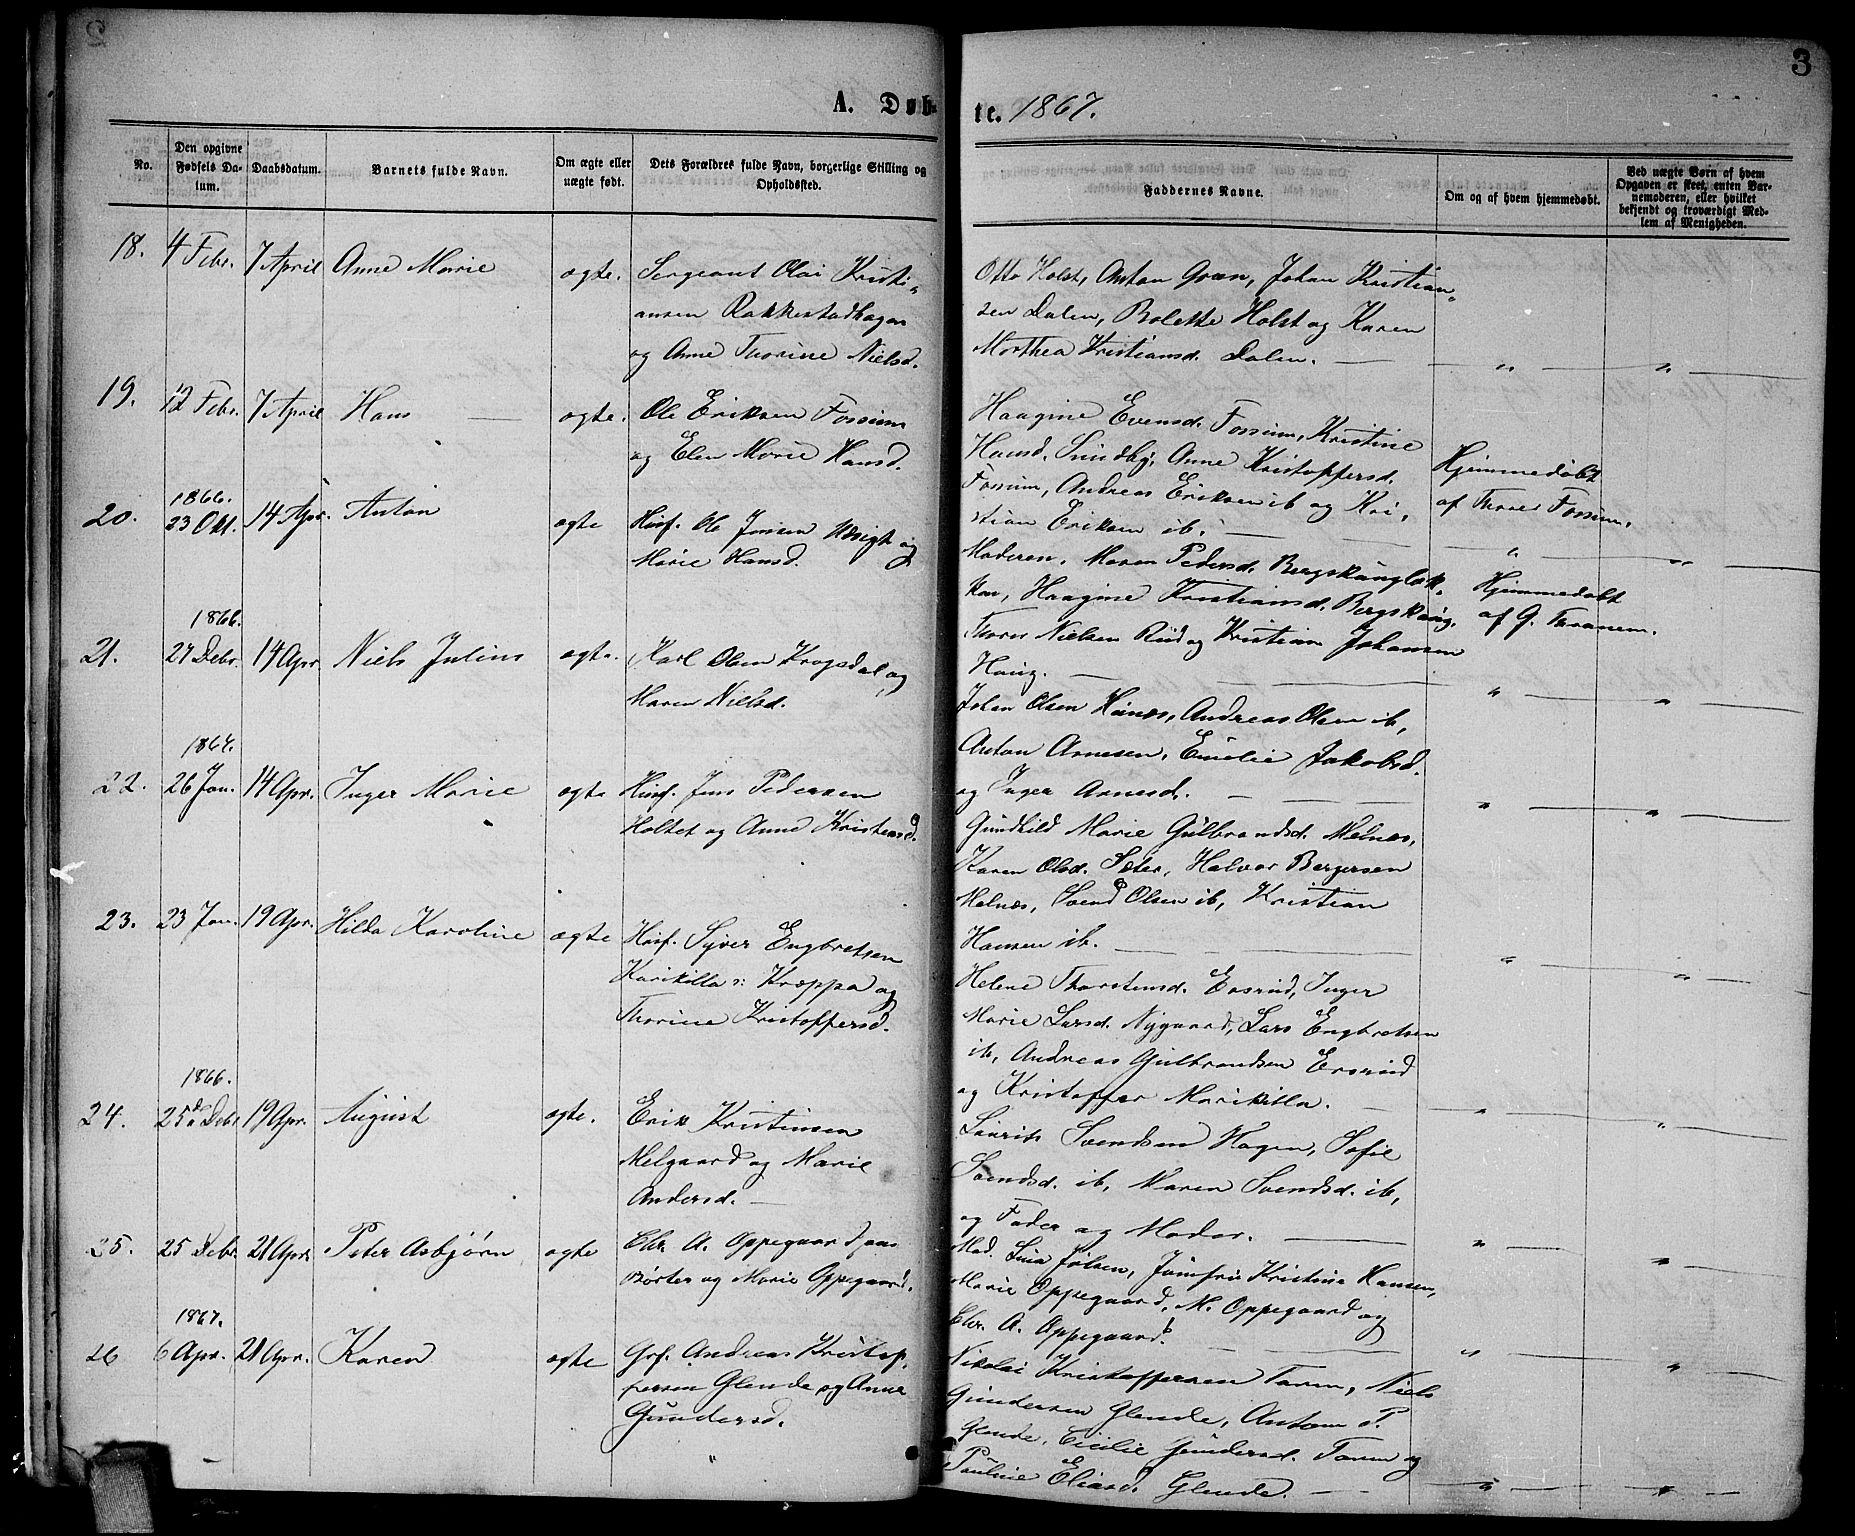 3
A. Døb-
te. 1867.
No.
Den opgivne Fødsels Da-
tum.
Daabsdatum.
Barnets fulde Navn.
Om ægte eller uægte født.
Dets Forældres fulde Navn, borgerlige Stilling og Opholdssted.
Faddernes Navne.
Om og af hvem hjemmedøbt.
Ved uægte Børn af hvem
Opgaven er skeet, enten Bar-
nemoderen, eller hvilket
bekjendt og troværdigt Med-
lem af Menigheden.
18. 4 Febr. 7 April Anne Marie ægte. Sergeant Olai Kristi-
ansen Rakkestadhagen
og Anne Thorine Nielsd.
Otto Holst, Anton Græn, Johan Kristian-
sen Dalen, Bolette Holst og Karen
Marthea Kristiansd. Dalen. — " — "
19. 12 Febr. 7 April Hans — ægte. Ole Eriksen Fossum
og Elen Marie Hansd.
Haagine Evensd. Fossum, Kristine
Hansd. Sundby, Anne Kristoffersd.
Fossum, Andreas Eriksen ib og Kri-
stian Eriksen ib. —
Hjemmedøbt
af Thores Fossum.
" — "
20. 1866.
23 Okt. 14 Apr. Anton ægte Husf. Ole Jensen og
Marie Hansd.
Moderen, Maren Pedersd.
Haagine Kristiansd.
Thores Nielsen Rud og Kristian Johansen
Haug. —
Hjemmedøbt
af G. Thranem.
" — "
21. 1866.
27 Debr. 14 Apr. Niels Julius ægte. Karl Olsen Krogsdal og
Maren Nielsd.
Johan Olsen Andreas Olsen ib,
Anton Arnesen, Emelie Jakobsd.
og Inger Arnesd. — " — "
22. 1867.
26 Jan. 14 Apr. Inger Marie ægte Husf. Jens Pedersen
Holtet og Anne Kristensd.
Gundhild Marie Gulbrandsd. Melnæs,
Karen Olsd. Sæter, Halvor Bergersen
Melnæs, Svend Olsen ib, Kristian
Hansen ib. — " — "
23. 23 Jan. 19 Apr. Hilda Karoline ægte Husf. Syver Engbretsen
Karikilla ɔ: Kræppa og
Thorine Kristoffersd.
Helene Thorstensd. Ersrud, Inger
Marie Larsd. Nygaard, Lars Engbretsen
ib, Andreas Gulbrandsen Ersrud
og Kristoffer Marikilla. — " — "
24. 1866.
25 Debr 19 Apr. August ægte. Erik Kristinsen
Melgaard og Marie
Andersd. —
Laurits Svendsen Hagen, Sofie
Svendsd. ib, Maren Svendsd. ib,
og Fader og Moder. — " — "
25. 25 Debr. 21 Apr. Peter Asbjørn ægte Chr. A. Oppegaard paa
Børter og Marie Oppegaard.
Mad. Lina Jølsen, Jomfru Kristine Hansen,
Marie Oppegaard, M. Oppegaard og
Chr. A. Oppegaard. — " — "
26 1867.
6 Apr. 21 Apr. Karen ægte Grf. Andreas Kristof-
fersen Glende og Anne
Gundersd.
Nikolai Kristoffersen Taren, Niels
Gundersen Glende, Antom P.
Glende, Cicilie Gundersd. Taren og
Pauline Eliasd. Glende. — " — "